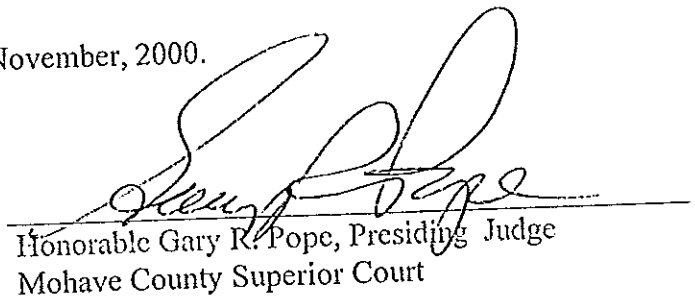 November, 2000.
Gary R. Pope
Honorable Gary R. Pope, Presiding Judge
Mohave County Superior Court